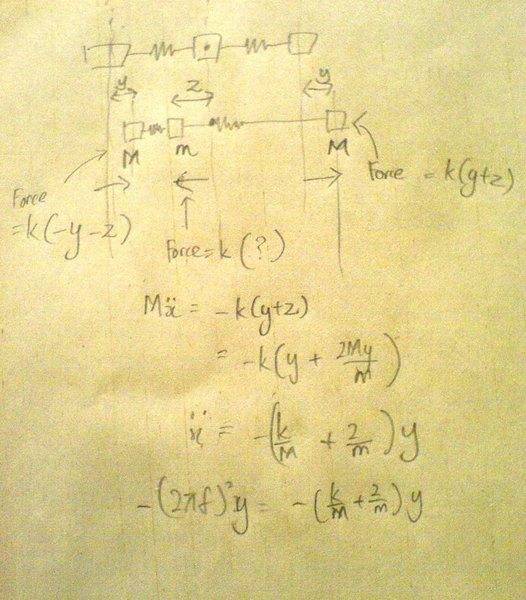 y z y
M m M
Force = k(y+z)
Force
= k(-y-z)
Force = k(?)
Mẍ = -k(y+z)
= -k(y + 2My/m)
ẍ = -(k/M + 2/m)y
-(2πf)²y = -(k/m + 2/m)y